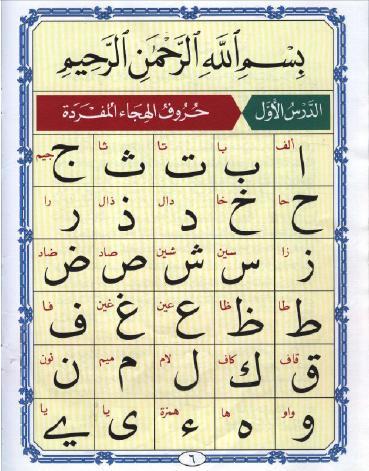 بِسْمِ اللهِ الرَّحْمٰنِ الرَّحِيْمِ
الدَّرْسُ الْأَوَّل حُرُوفُ الهِجَاءِ المُفْرَدَة
الف با تا ثا جيم
ا ب ت ث ج
حا خا دال ذال را
ح خ د ذ ر
زا سين شين صاد ضاد
ز س ش ص ض
طا ظا عين غين فا
ط ظ ع غ ف
قاف كاف لام ميم نون
ق ك ل م ن
واو ها همزة يا يا
و ه ء ى ے
٦